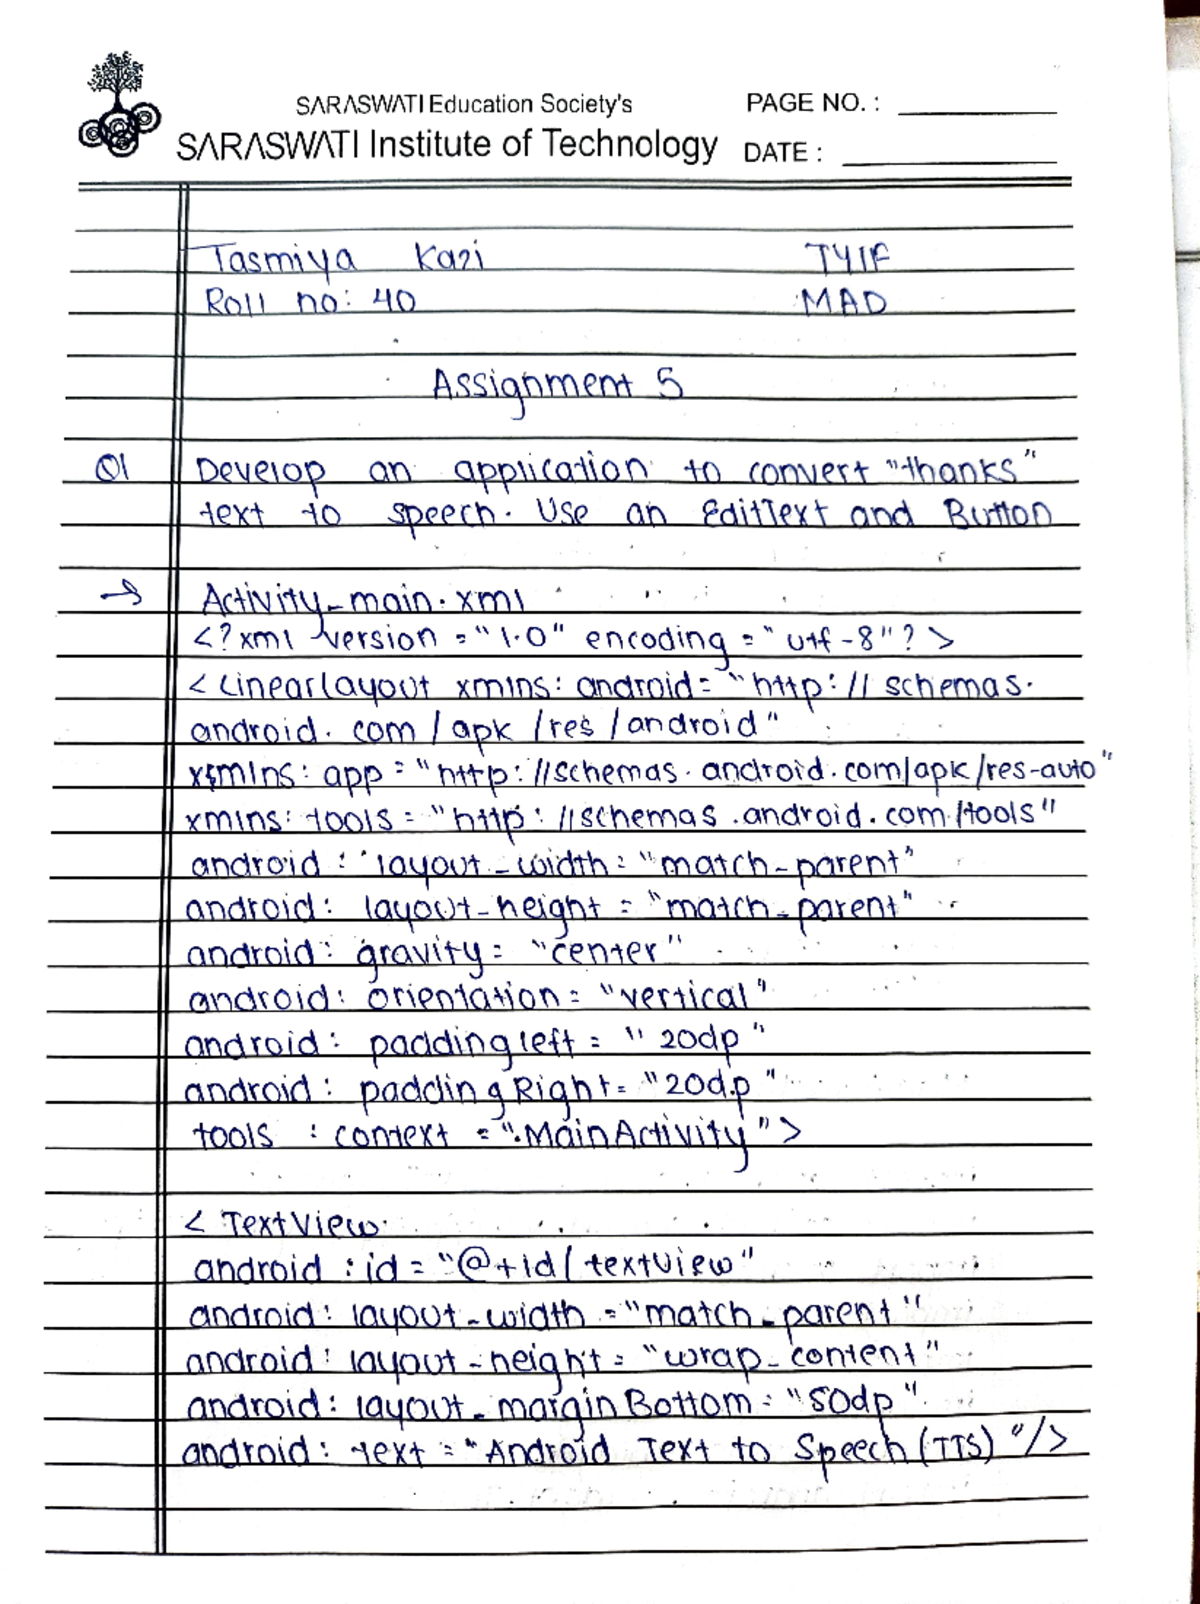 SARASWATI Education Society's
SARASWATI Institute of Technology
PAGE NO. :
DATE :
Tasmiya Kazi TYIF
Roll no: 40 MAD
Assignment 5
Q1 Develop an application to convert "thanks"
text to speech. Use an EditText and Button
→ Activity_main.xml
<?xml version = "1.0" encoding = "utf-8"?>
<Linearlayout xmlns: android= "http://schemas.
android.com/apk/res/android"
xmlns: app = "http://schemas.android.com/apk/res-auto"
xmlns: tools = "http://schemas.android.com/tools"
android: layout_width= "match_parent"
android: layout_height = "match_parent"
android: gravity= "center"
android: orientation= "vertical"
android: paddingleft = "20dp"
android: paddingRight= "20dp"
tools : context = ".MainActivity">
< TextView
android : id = "@+id/textView"
android: layout_width = "match_parent"
android: layout_height = "wrap_content"
android: layout_marginBottom= "50dp"
android: text = "Android Text to Speech (TTS) "/>